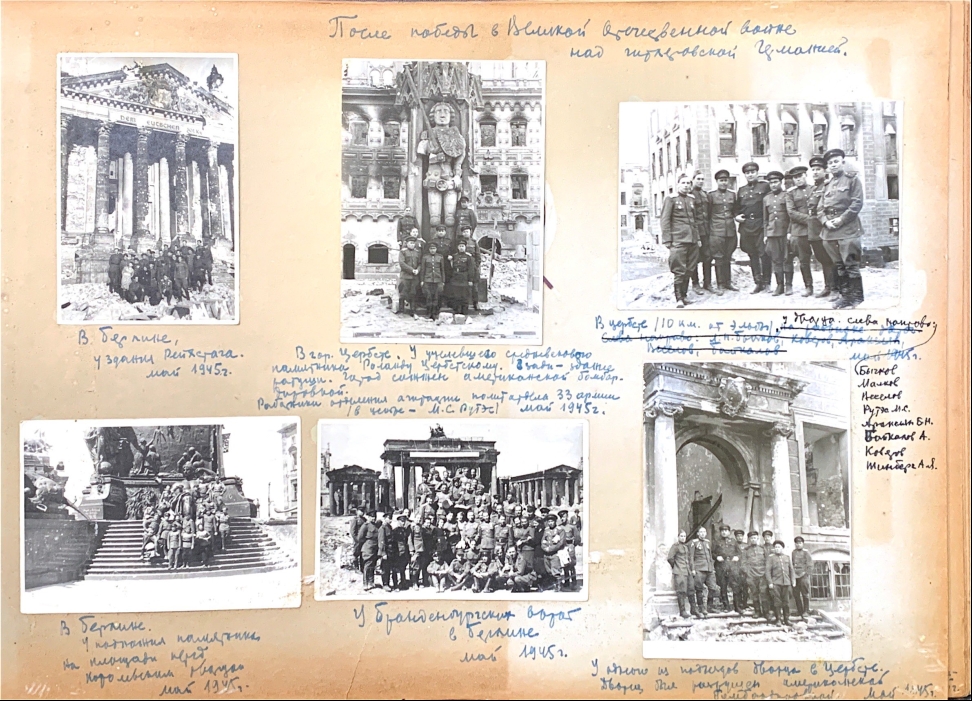 После победы в Великой Отечественной войне
над гитлеровской Германией.
DEM DEUTSCHEN VOLKE
В Берлине,
у здания Рейхстага.
май 1945г.
В гор. Цербсте. У уцелевшего средневекового
памятника Роланду Цербстскому. Сзади – здание
ратуши. Город сожжен американской бомбар-
дировкой.
Работники отделения агитации политотдела 33 армии
/в центре – М.С. Рутэс/ май 1945г.
В Цербсте /10 км. от Эльбы/,
у дворца. слева направо:
слева направо: Бычков, Ковзов, Арансын,
Веселов, Бабкалов
май 1945г.
Бычков
Малков
Веселов
Рутэс М.С.
Аронсын Б.Н.
Бабкалов А.
Ковзов
Шинберг А.Я.
В Берлине.
У подножия памятника
на площади перед
королевским дворцом
май 1945г.
У Бранденбургских ворот
в Берлине
май 1945г.
У одного из подъездов дворца в Цербсте.
Дворец был разрушен американской
бомбардировкой. Май 1945г.